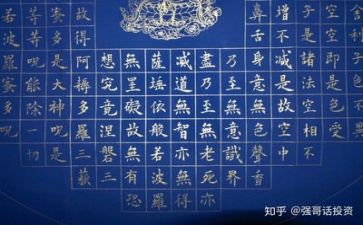 空即是色受
子是諸法空相不
增不減是故空中
鼻舌身意無色聲香
乃至無意識界
盡乃至無老死亦
滅道無智亦無得
薩埵依般若波羅
無罣礙故無有恐
想究竟涅槃三
得阿耨多羅三藐
故
多是大神呪是
等等呪能除一切
若波羅蜜多呪
知乎 @强哥话投资